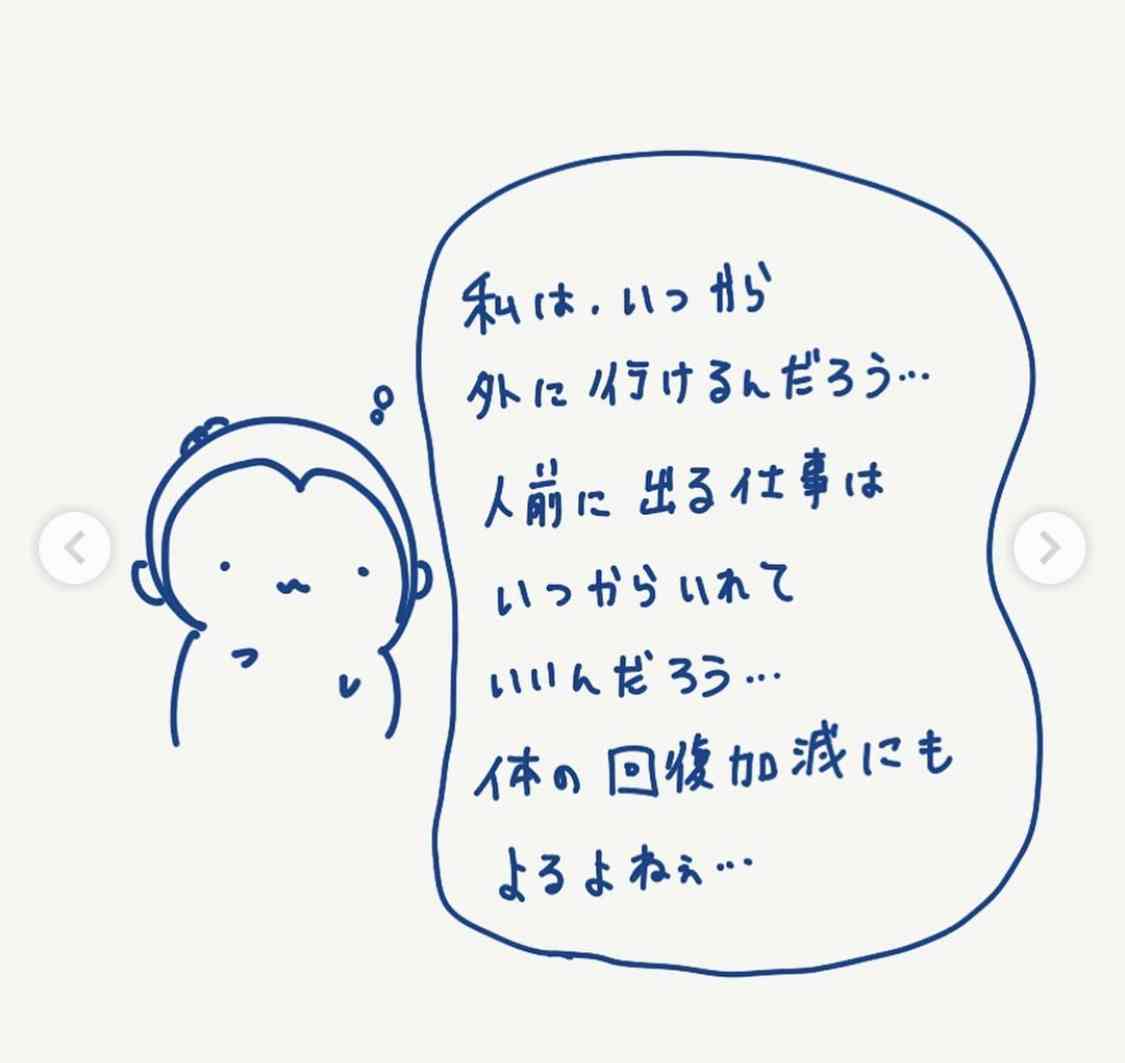 私は、いつから
外に行けるんだろう…
人前に出る仕事は
いつからいれて
いいんだろう…
体の回復加減にも
よるよねぇ…